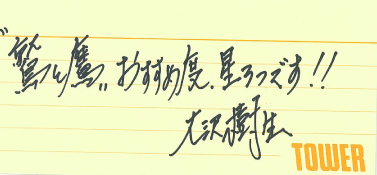 "鷲と鷹"おすすめ度、星3つです!!
大沢樹生
TOWER